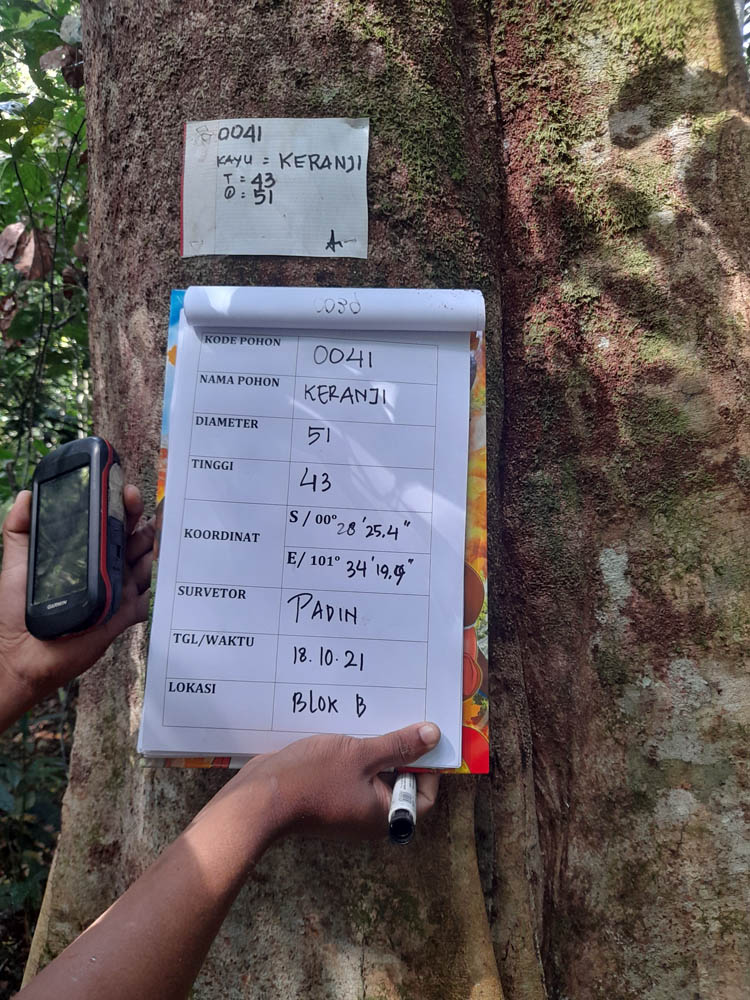 0041
KAYU = KERANJI
T = 43
Ø = 51
KODE POHON 0041
NAMA POHON KERANJI
DIAMETER 51
TINGGI 43
KOORDINAT S / 00° 28'25.4"
E/ 101° 34'19.9"
SURVETOR PADIN
TGL/WAKTU 18.10.21
LOKASI BLOK B
GARMIN